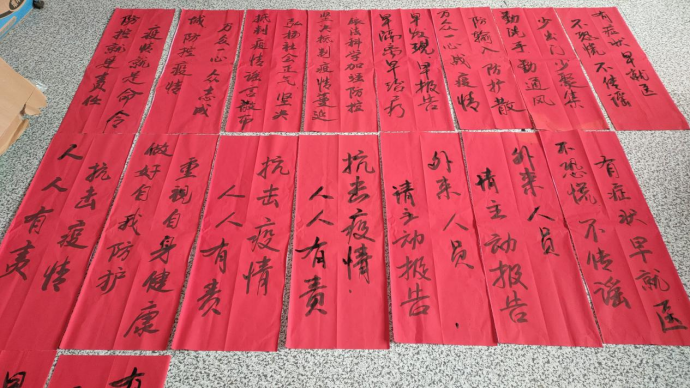 有症状早就医
不恐慌 不传谣
少出门 少聚集
勤洗手 勤通风
防输入 防扩散
万众一心战疫情
早发现 早报告
早隔离早治疗
依法科学加强防控
坚决抵制疫情蔓延
弘扬社会正气 坚决
抵制疫情谣言散布
万众一心 众志成
城防控疫情
疫情就是命令
防控就是责任
有症状早就医
不恐慌 不传谣
外来人员
请主动报告
外来人员
请主动报告
抗击疫情
人人有责
抗击疫情
人人有责
重视自身健康
做好自我防护
抗击疫情
人人有责
有